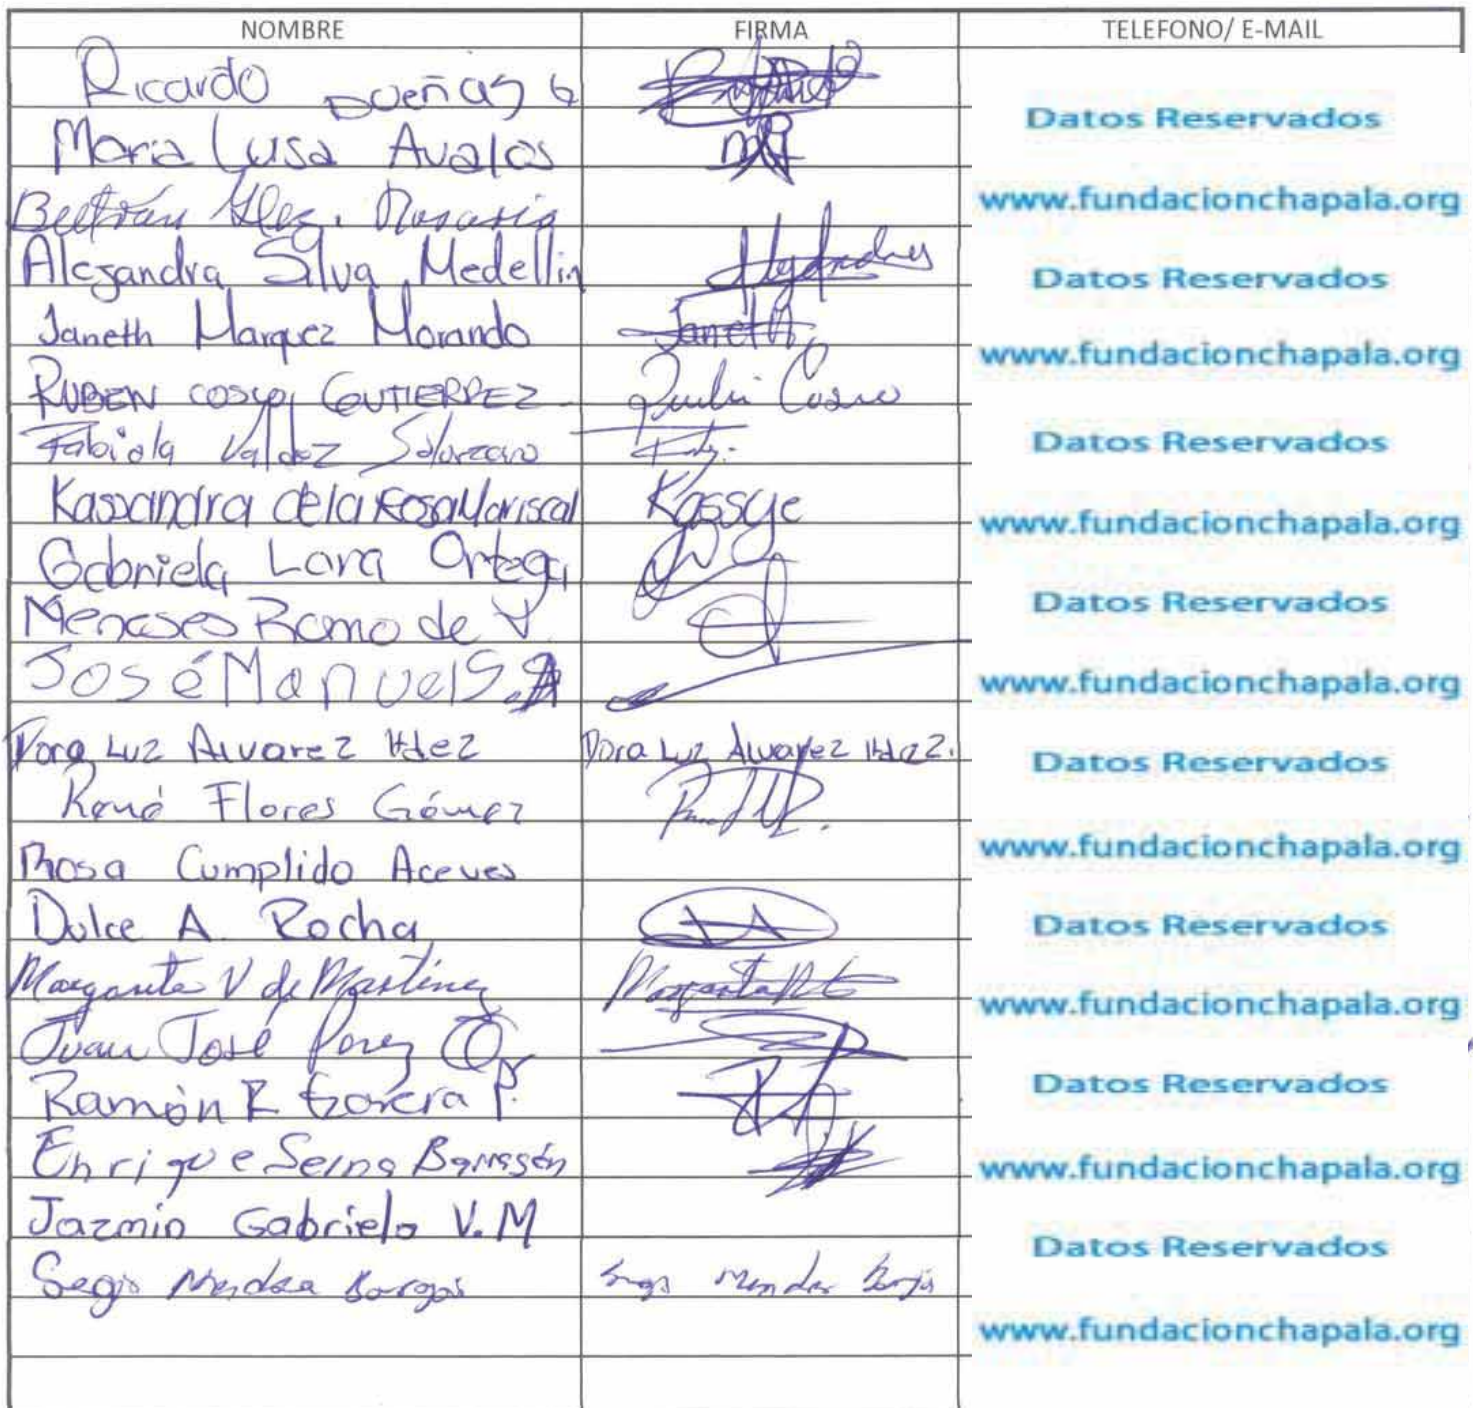 NOMBRE FIRMA TELEFONO/ E-MAIL
Ricardo Dueñas G
Datos Reservados
Maria Luisa Avalos
www.fundacionchapala.org
Beltrán Glez. Rosario
Alejandra Silva Medellin
Datos Reservados
Janeth Marquez Morando Janeth
www.fundacionchapala.org
RUBEN COSYO GUTIERREZ
Datos Reservados
Fabiola Valdez Solorzano
Kassandra de la Rosa Mariscal Kassye
www.fundacionchapala.org
Gabriela Lara Ortega
Datos Reservados
Meneses Romo de V.
José Manuel S.
www.fundacionchapala.org
Dora Luz Alvarez Hdez Dora Luz Alvarez Hdez.
Datos Reservados
René Flores Gómez
www.fundacionchapala.org
Rosa Cumplido Aceves
Dulce A. Rocha
Datos Reservados
Margarita V de Martinez Margarita
www.fundacionchapala.org
Juan José Perez
Ramón R García P.
Datos Reservados
Enrique Serna Barragán
www.fundacionchapala.org
Jazmin Gabriela V. M
Datos Reservados
Sergio Mendoza Borgas
www.fundacionchapala.org